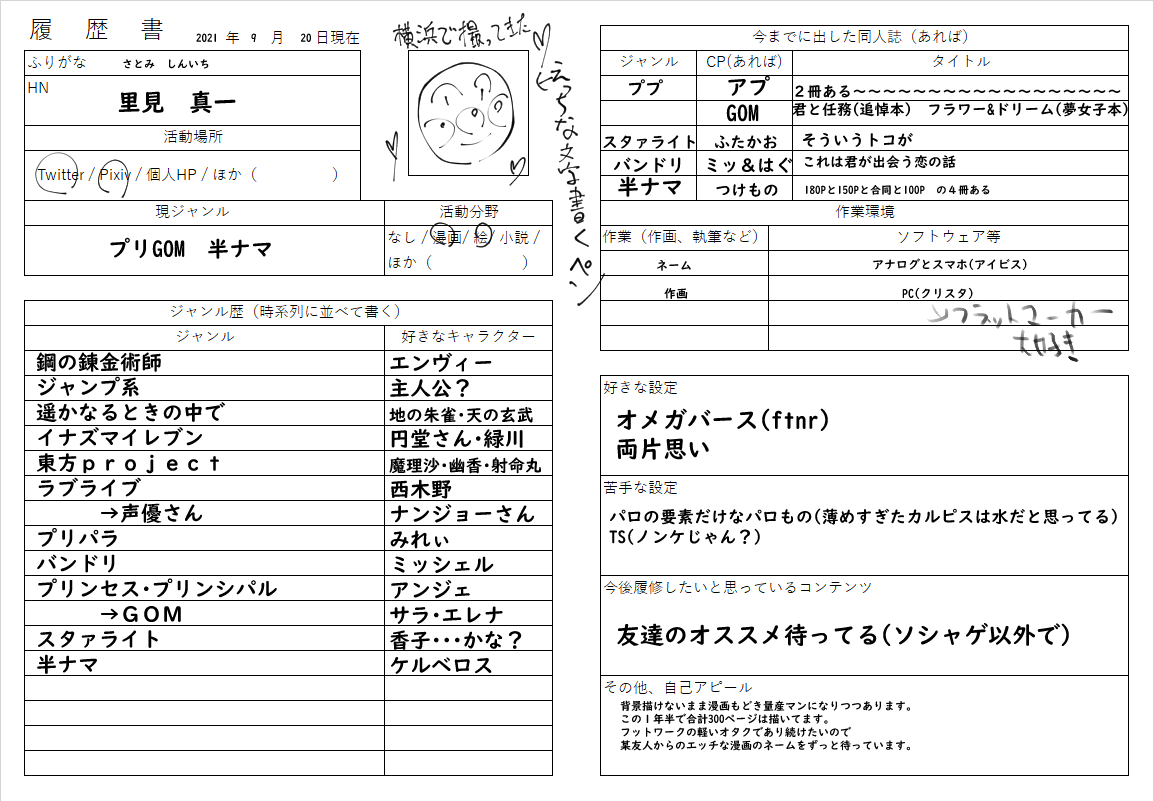 履 歴 書
2021 年 9 月 20 日現在
ふりがな さとみ しんいち
HN
里見 真一
活動場所
Twitter / Pixiv / 個人HP / ほか（ ）
現ジャンル
活動分野
プリGOM 半ナマ
なし / 漫画 / 絵 / 小説 /
ほか（ ）
横浜で撮ってきた
えっちな文字書くペン
ジャンル歴（時系列に並べて書く）
ジャンル 好きなキャラクター
鋼の錬金術師 エンヴィー
ジャンプ系 主人公？
遥かなるときの中で 地の朱雀・天の玄武
イナズマイレブン 円堂さん・緑川
東方ｐｒｏｊｅｃｔ 魔理沙・幽香・射命丸
ラブライブ 西木野
→声優さん ナンジョーさん
プリパラ みれぃ
バンドリ ミッシェル
プリンセス・プリンシパル アンジェ
→ＧＯＭ サラ・エレナ
スタァライト 香子・・・かな？
半ナマ ケルベロス
今までに出した同人誌（あれば）
ジャンル CP(あれば) タイトル
ププ アプ ２冊ある～～～～～～～～～～～～～～～～～～
GOM 君と任務(追悼本) フラワー&ドリーム(夢女子本)
スタァライト ふたかお そういうトコが
バンドリ ミッ＆はぐ これは君が出会う恋の話
半ナマ つけもの 180Pと150Pと合同と100P の４冊ある
作業環境
作業（作画、執筆など） ソフトウェア等
ネーム アナログとスマホ(アイビス)
作画 PC(クリスタ)
フラットマーカー
大好き
好きな設定
オメガバース(ftnr)
両片思い
苦手な設定
パロの要素だけなパロもの(薄めすぎたカルピスは水だと思ってる)
TS(ノンケじゃん？)
今後履修したいと思っているコンテンツ
友達のオススメ待ってる(ソシャゲ以外で)
その他、自己アピール
背景描けないまま漫画もどき量産マンになりつつあります。
この１年半で合計300ページは描いてます。
フットワークの軽いオタクであり続けたいので
某友人からのエッチな漫画のネームをずっと待っています。